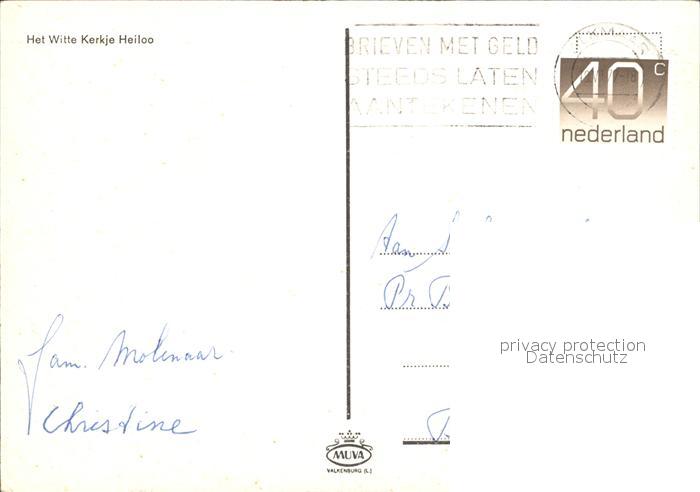 Het Witte Kerkje Heiloo
BRIEVEN MET GELD
STEEDS LATEN
AANTEKENEN
40 c
nederland
Aan
Pr
privacy protection
Datenschutz
fam. Molenaar
Christine
MUVA
VALKENBURG (L.)